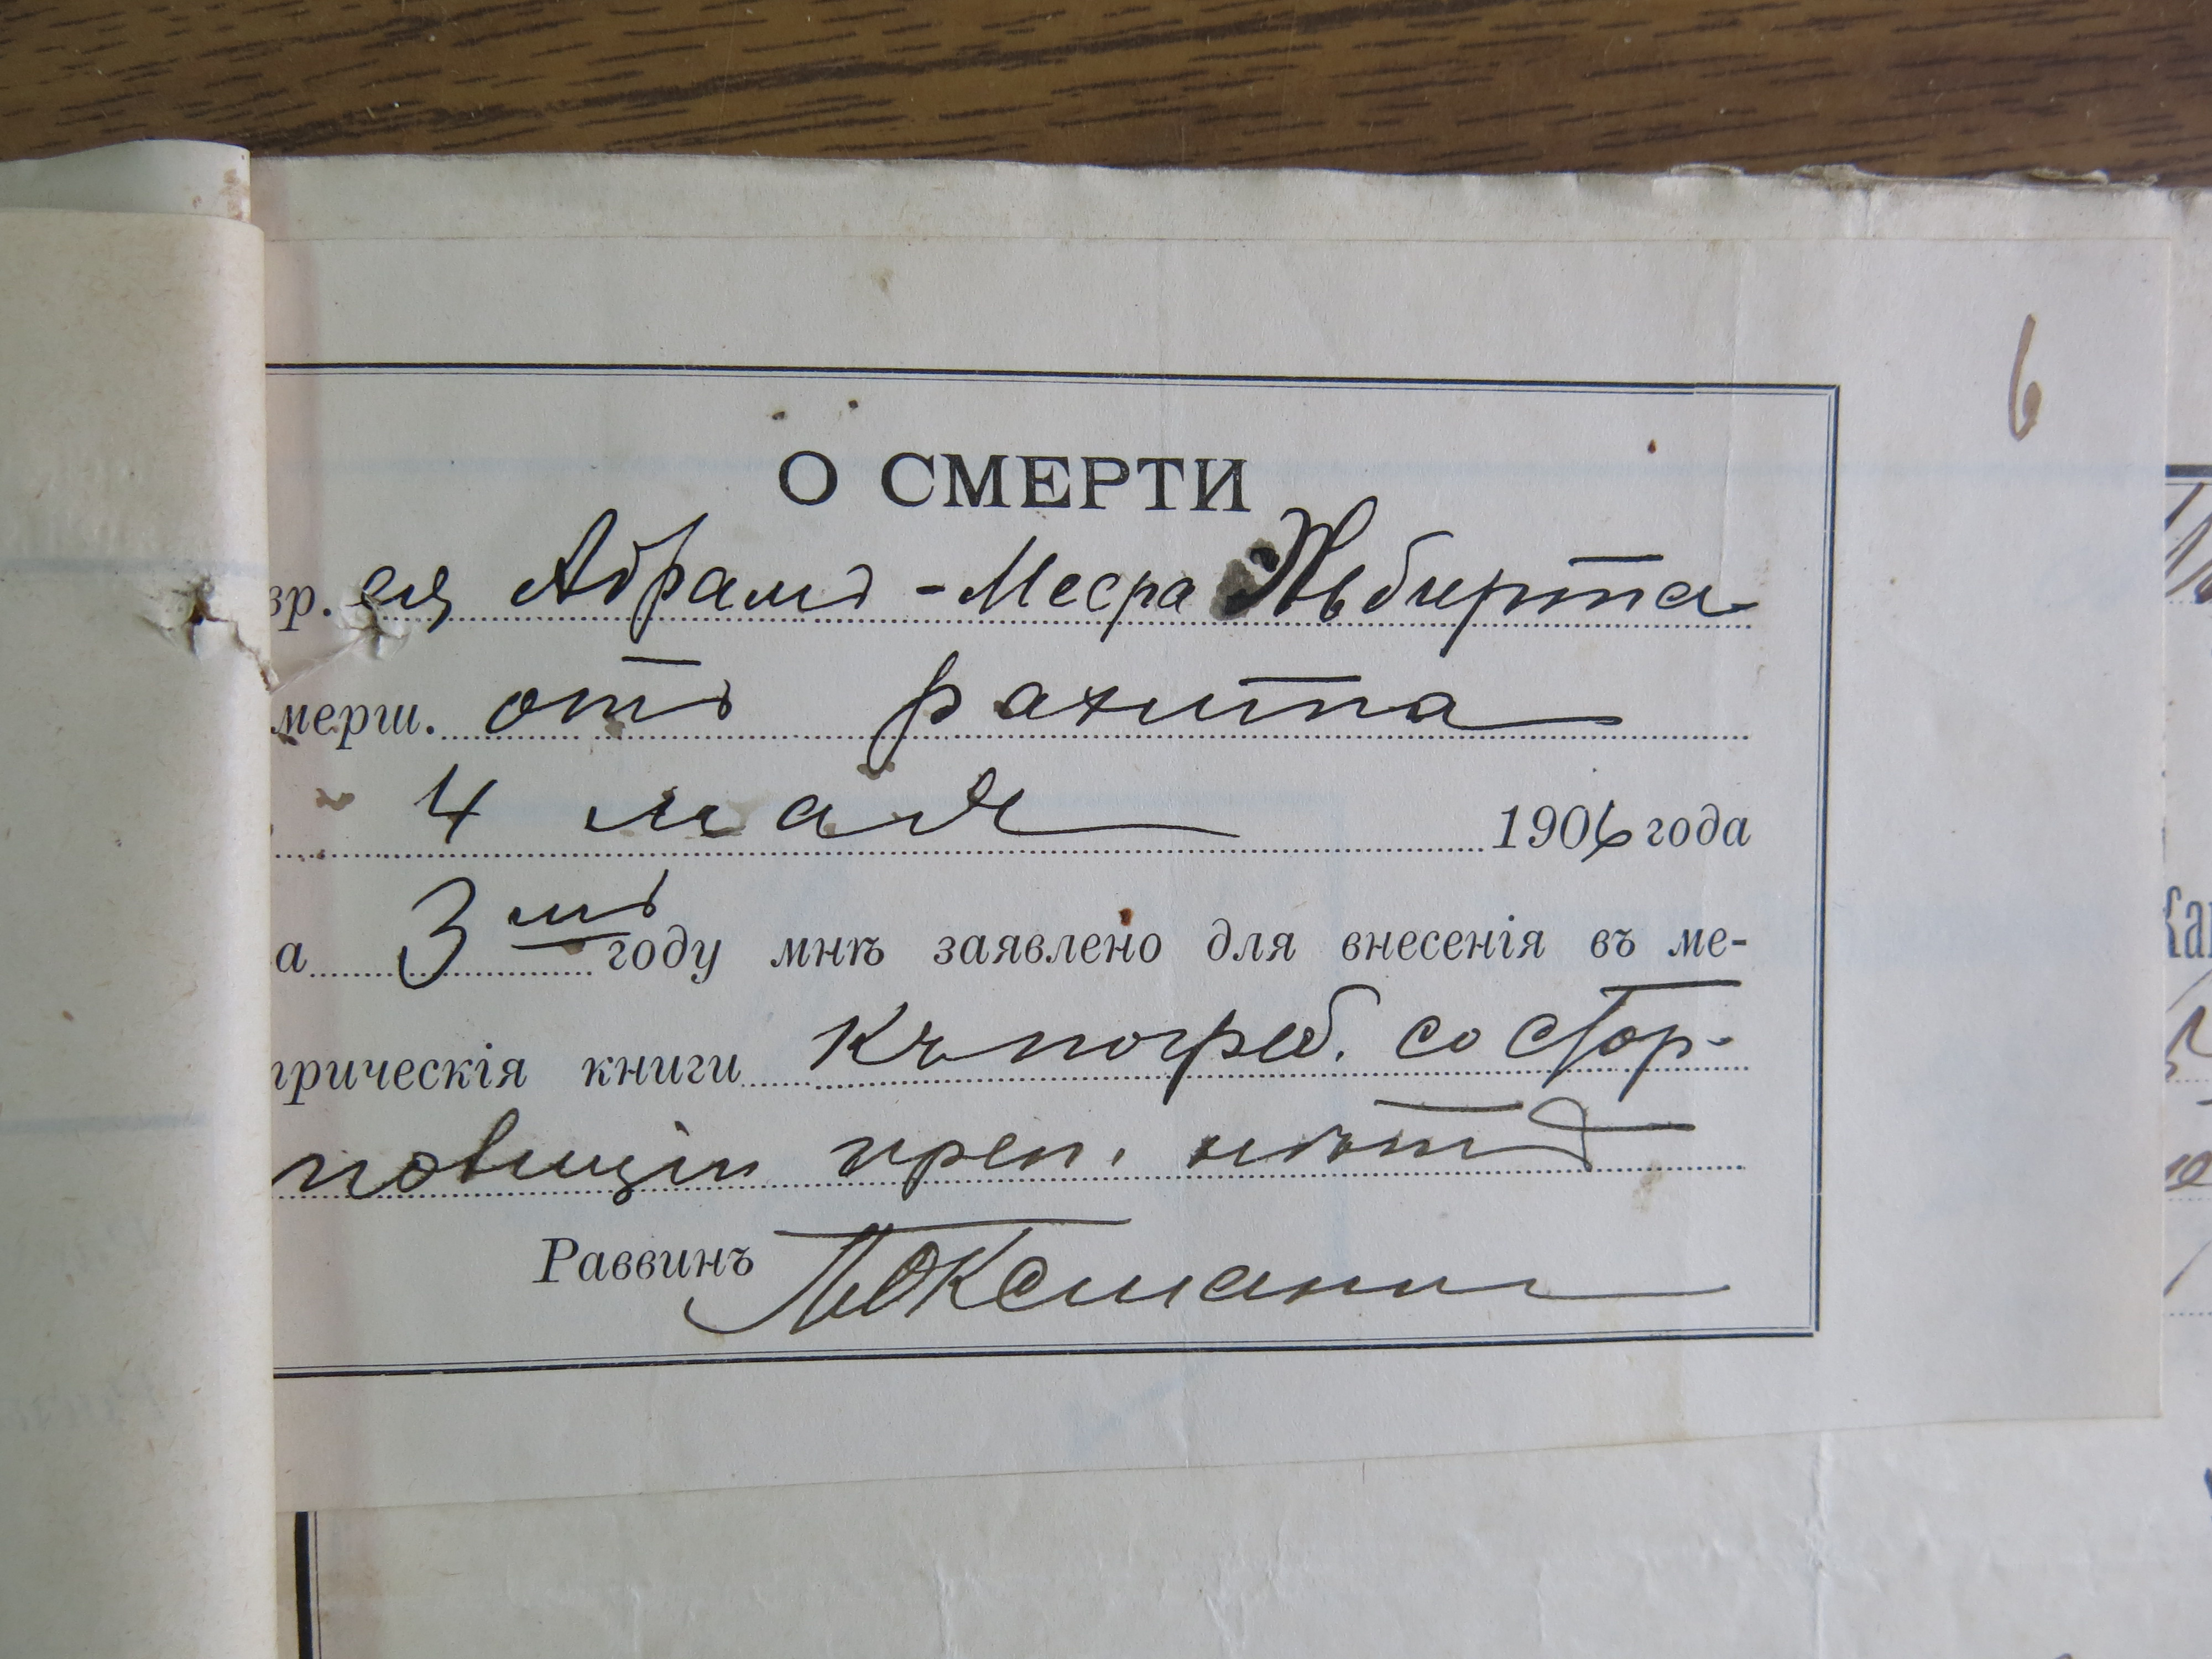 6
О СМЕРТИ
вр. ея Абрамъ-Меера
мерш. отъ рахита
4 мая 1906 года
а 3 мъ году мнѣ заявлено для внесенія въ ме-
трическія книги Къ погреб. со стор-
ны полиціи преп. нѣтъ
Раввинъ